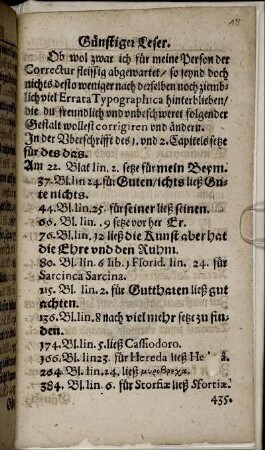 18
Günstiger Leser.
Ob wol zwar ich für meine Person der
Correctur fleissig abgewartet / so seynd doch
nichts desto weniger nach derselben noch ziemb-
lich viel Errata Typographica hinterblieben /
die du freundlich vnd vnbeschweret folgender
Gestalt wollest corrigiren vnd ändern.
In der Vberschrifft des 1. vnd 2. Capitels setze
für des das.
Am 22. Blat lin. 2. setze für mein Beym.
37. Bl. lin 24 für Guten / ichts ließ Gu-
te nichts.
44. Bl. lin. 25. für seiner ließ seinen.
66. Bl. lin. 9 setze vor her Er.
76. Bl. lin. 12 ließ die Kunst aber hat
die Ehre vnd den Ruhm.
80. Bl. lin. 6 lib. 1 Florid. lin. 24. für
Sarcinca Sarcina.
115. Bl. lin. 2. für Gutthaten ließ gut
achten.
136. Bl. lin. 8 nach viel mehr setze zu fin-
den.
174. Bl. lin. 5. ließ Cassiodoro.
166. Bl. lin 23. für Hereda ließ
264. Bl. lin. 24. ließ
384. Bl. lin. 6. für Storfiæ ließ Sfortiæ.
435.